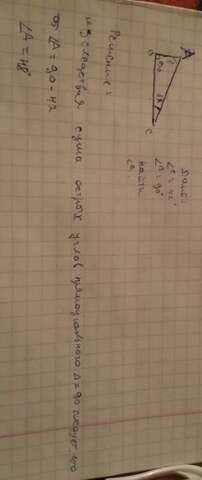 A
B
C
90
42
?
Дано:
∠C = 42°
∠B = 90°
Найти
Решение:
из следствия сума острых углов прямоугольного Δ = 90 следует, что
∠A = 90 - 42
∠A = 48°